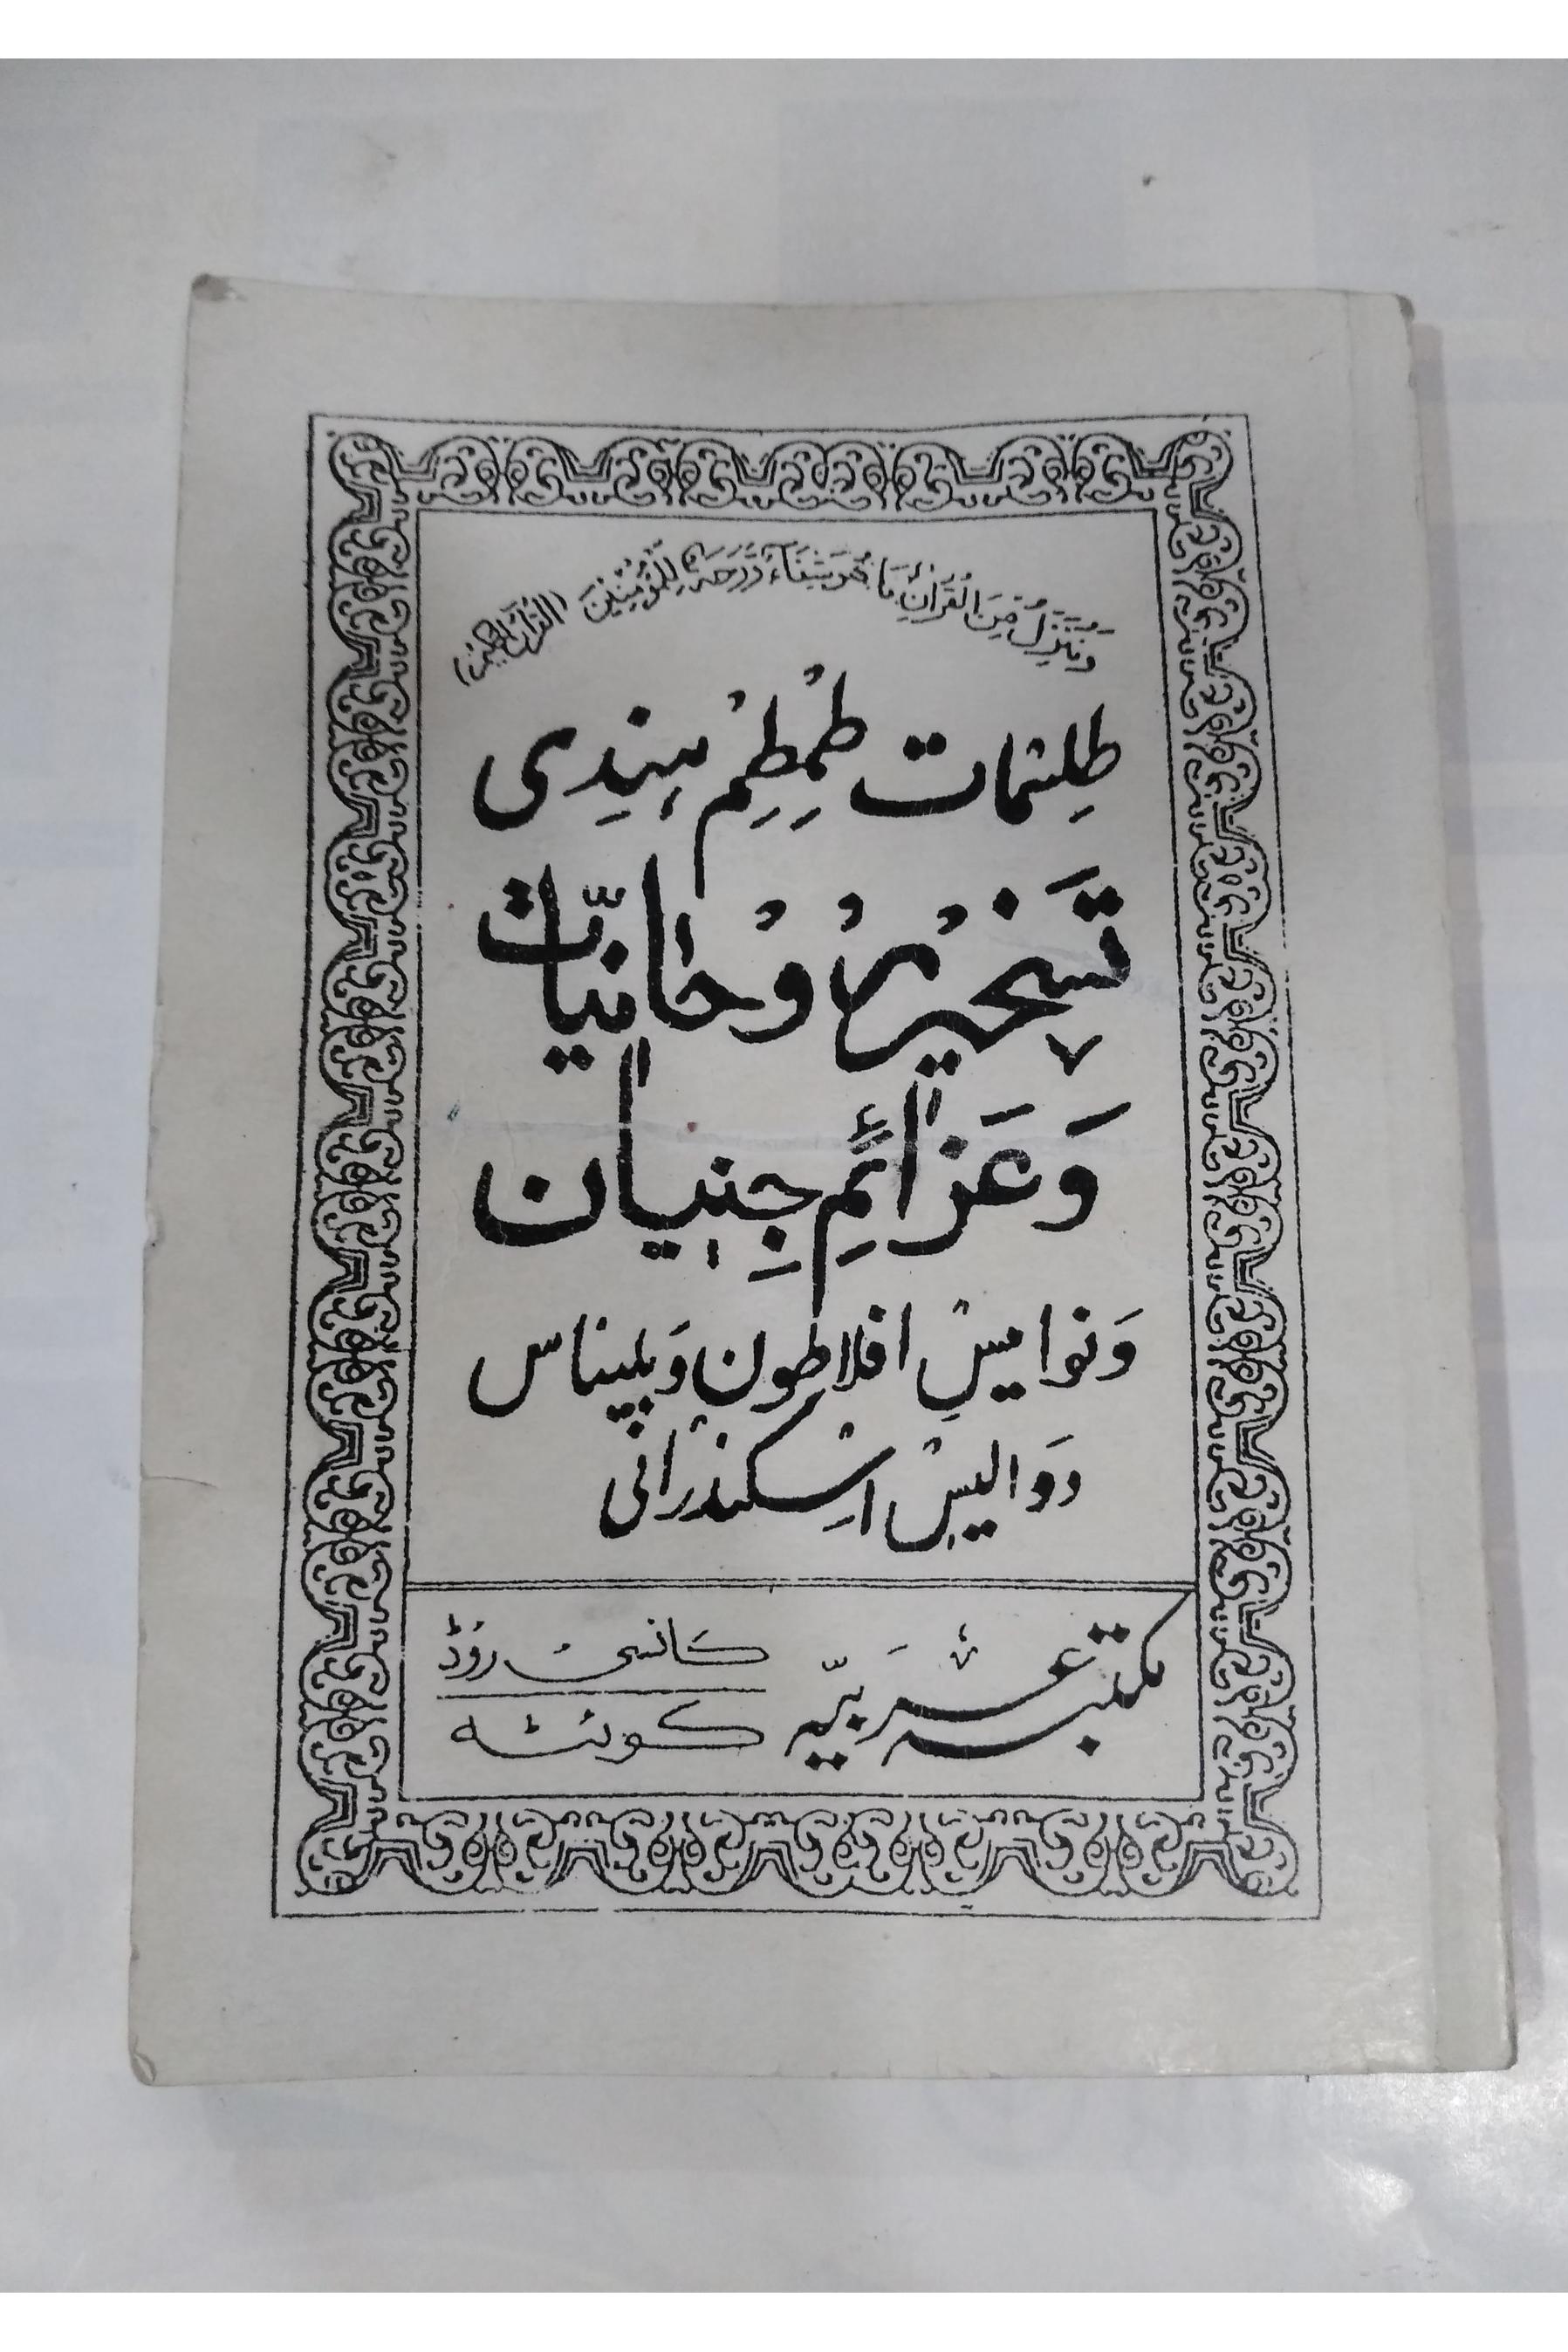 وَنُنَزِّلُ مِنَ الْقُرْآنِ مَا هُوَ شِفَاءٌ وَّرَحْمَةٌ لِّلْمُؤْمِنِينَ (القرآن الحکیم)
طِلِسْمات طُمْطِمْ ہِنْدِی
تَسْخِیْرِ رُوْحَانِیّات
وَعَزَائِمِ جِنِّیان
وَنوامیسِ افلاطون وَبلیناس
دوالیسِ اِسْکندْرانی
مکتبہ عَرَبیّہ
کانسی روڈ
کوئٹہ